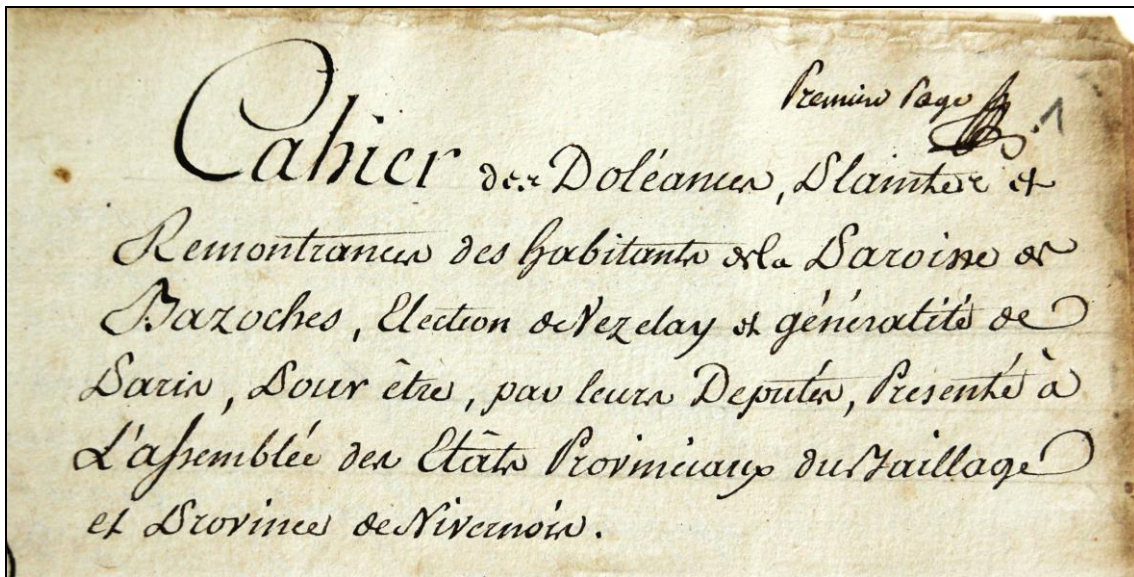 Premiere Page 1
Cahier des Doléances, Plaintes et
Remontrances des habitants de la Paroisse de
Bazoches, Election de Vezelay et généralité de
Paris, Pour être, par leurs Deputés, Présenté à
L'assemblée des Etâts Provinciaux du Baillage
et Province de Nivernois.